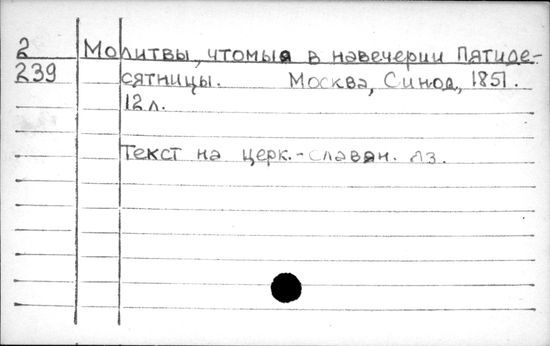 2 Молитвы, чтомыя в навечерии Пятиде-
239 сятницы. Москва, Синод, 1851.
12 л.
Текст на церк.-славян. яз.